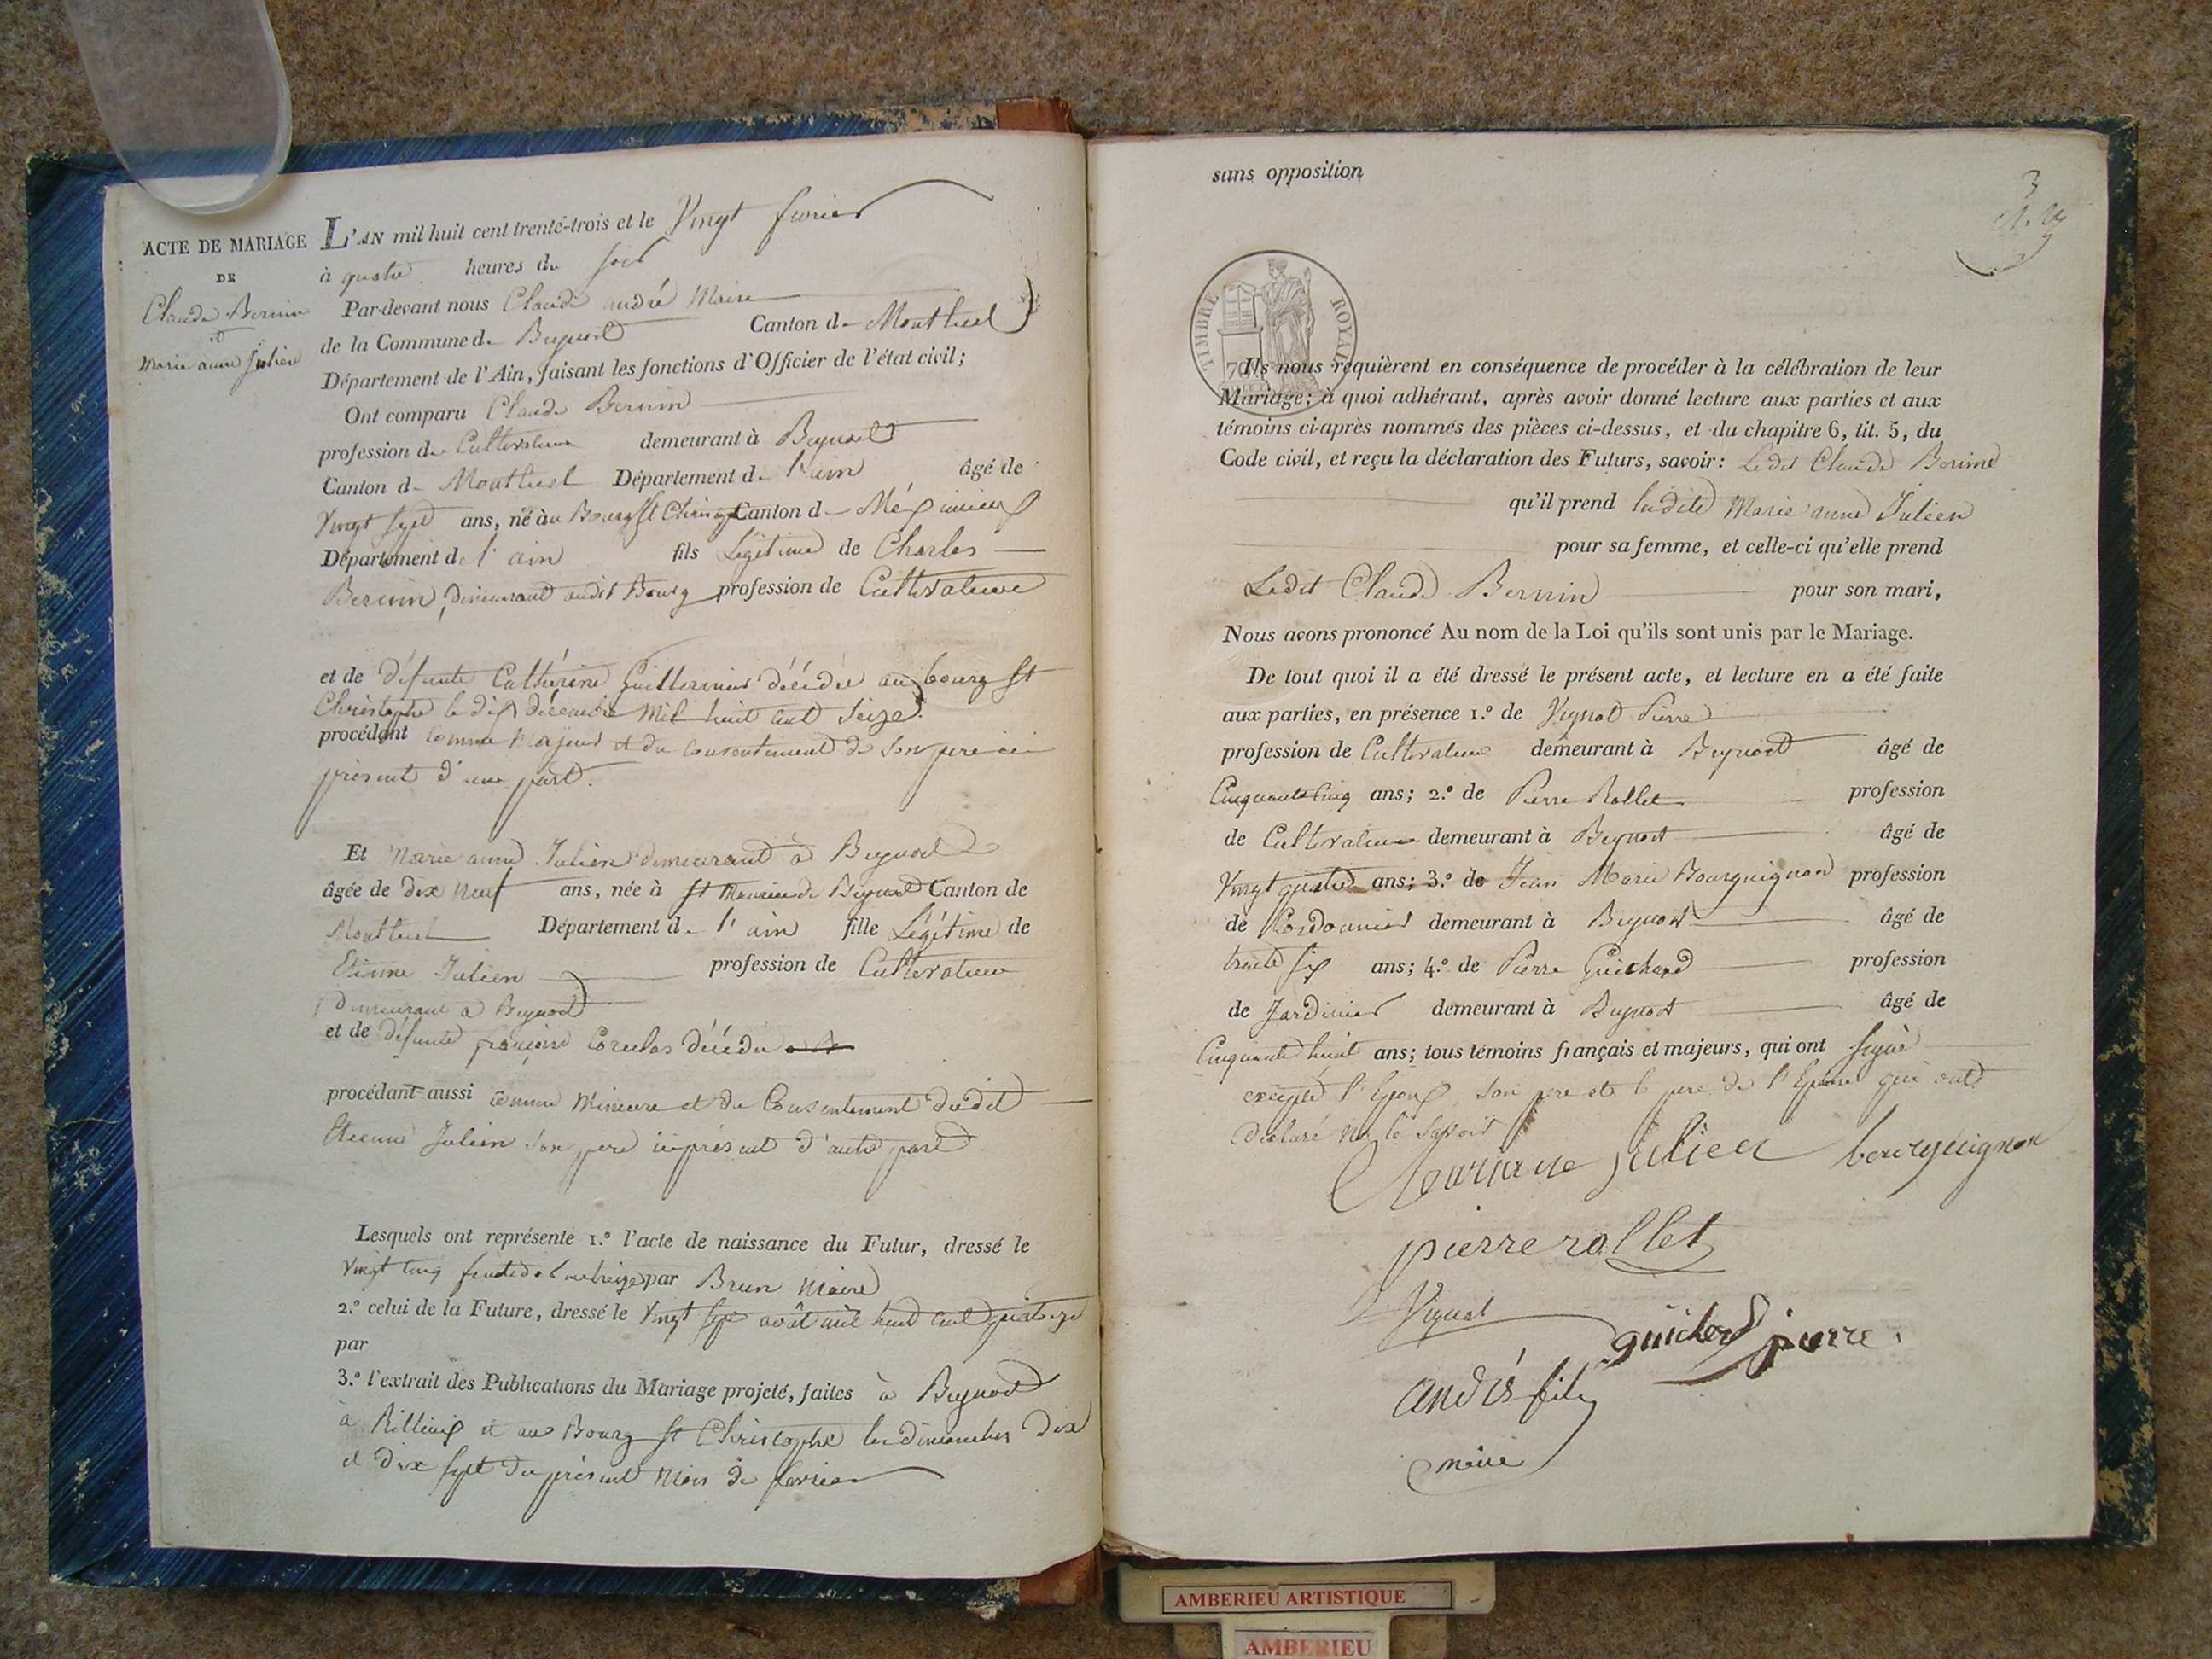 ACTE DE MARIAGE
DE
Claude Bernin
et
Marie anne Julien
L'AN mil huit cent trente-trois et le Vingt fevrier
à quatre heures du soir
Par-devant nous Claude andré Maire
de la Commune de Beynost Canton de Montluel
Département de l'Ain, faisant les fonctions d'Officier de l'état civil;
Ont comparu Claude Bernin
profession de Cultivateur demeurant à Beynost
Canton de Montluel Département de l'ain âgé de
Vingt sept ans, né au Bourg St Christophe Canton de Méximieux
Département de l'ain fils Légitime de Charles
Bernin, demeurant audit Bourg profession de Cultivateur
et de défunte Cathérine Guillermin décédée au bourg St
Christophe le dix décembre mil huit cent seize.
procédant comme Majeur et du consentement de son pere ici
présent d'une part.
Et Marie anne Julien demeurant à Beynost
âgée de dix neuf ans, née à St Maurice de Beynost Canton de
Montluel Département de l'ain fille Légitime de
Etienne Julien profession de Cultivateur
demeurant à Beynost
et de défunte françoise décédée
procédant aussi comme Mineure et du Consentement dudit
Etienne Julien son pere ici présent d'autre part
Lesquels ont représenté 1.º l'acte de naissance du Futur, dressé le
Vingt cinq par Brun Maire
2.º celui de la Future, dressé le Vingt sept août mil huit cent quatorze
par
3.º l'extrait des Publications du Mariage projeté, faites à Beynost
à Rillieux et au Bourg St Christophe les dimanches dix
et dix sept du présent mois de fevrier
sans opposition
3
TIMBRE ROYAL
70
Ils nous requièrent en conséquence de procéder à la célébration de leur
Mariage; à quoi adhérant, après avoir donné lecture aux parties et aux
témoins ci-après nommés des pièces ci-dessus, et du chapitre 6, tit. 5, du
Code civil, et reçu la déclaration des Futurs, savoir: Ledit Claude Bernin
qu'il prend ladite Marie anne Julien
pour sa femme, et celle-ci qu'elle prend
Ledit Claude Bernin pour son mari,
Nous avons prononcé Au nom de la Loi qu'ils sont unis par le Mariage.
De tout quoi il a été dressé le présent acte, et lecture en a été faite
aux parties, en présence 1.º de Vignat Pierre
profession de Cultivateur demeurant à Beynost âgé de
Cinquante Cinq ans; 2.º de Pierre Rollet profession
de Cultivateur demeurant à Beynost âgé de
Vingt quatre ans; 3.º de Jean Marie Bourguignon profession
de Cordonnier demeurant à Beynost âgé de
trente six ans; 4.º de Pierre Guichard profession
de Jardinier demeurant à Beynost âgé de
Cinquante huit ans; tous témoins français et majeurs, qui ont signé
excepté l'Epoux, son pere et le pere de l'Epouse qui ont
déclaré ne le Savoir
Mariane julien bourguignon
pierre rollet
Vignat
guichard pierre
andré fils
maire
AMBERIEU ARTISTIQUE
AMBERIEU